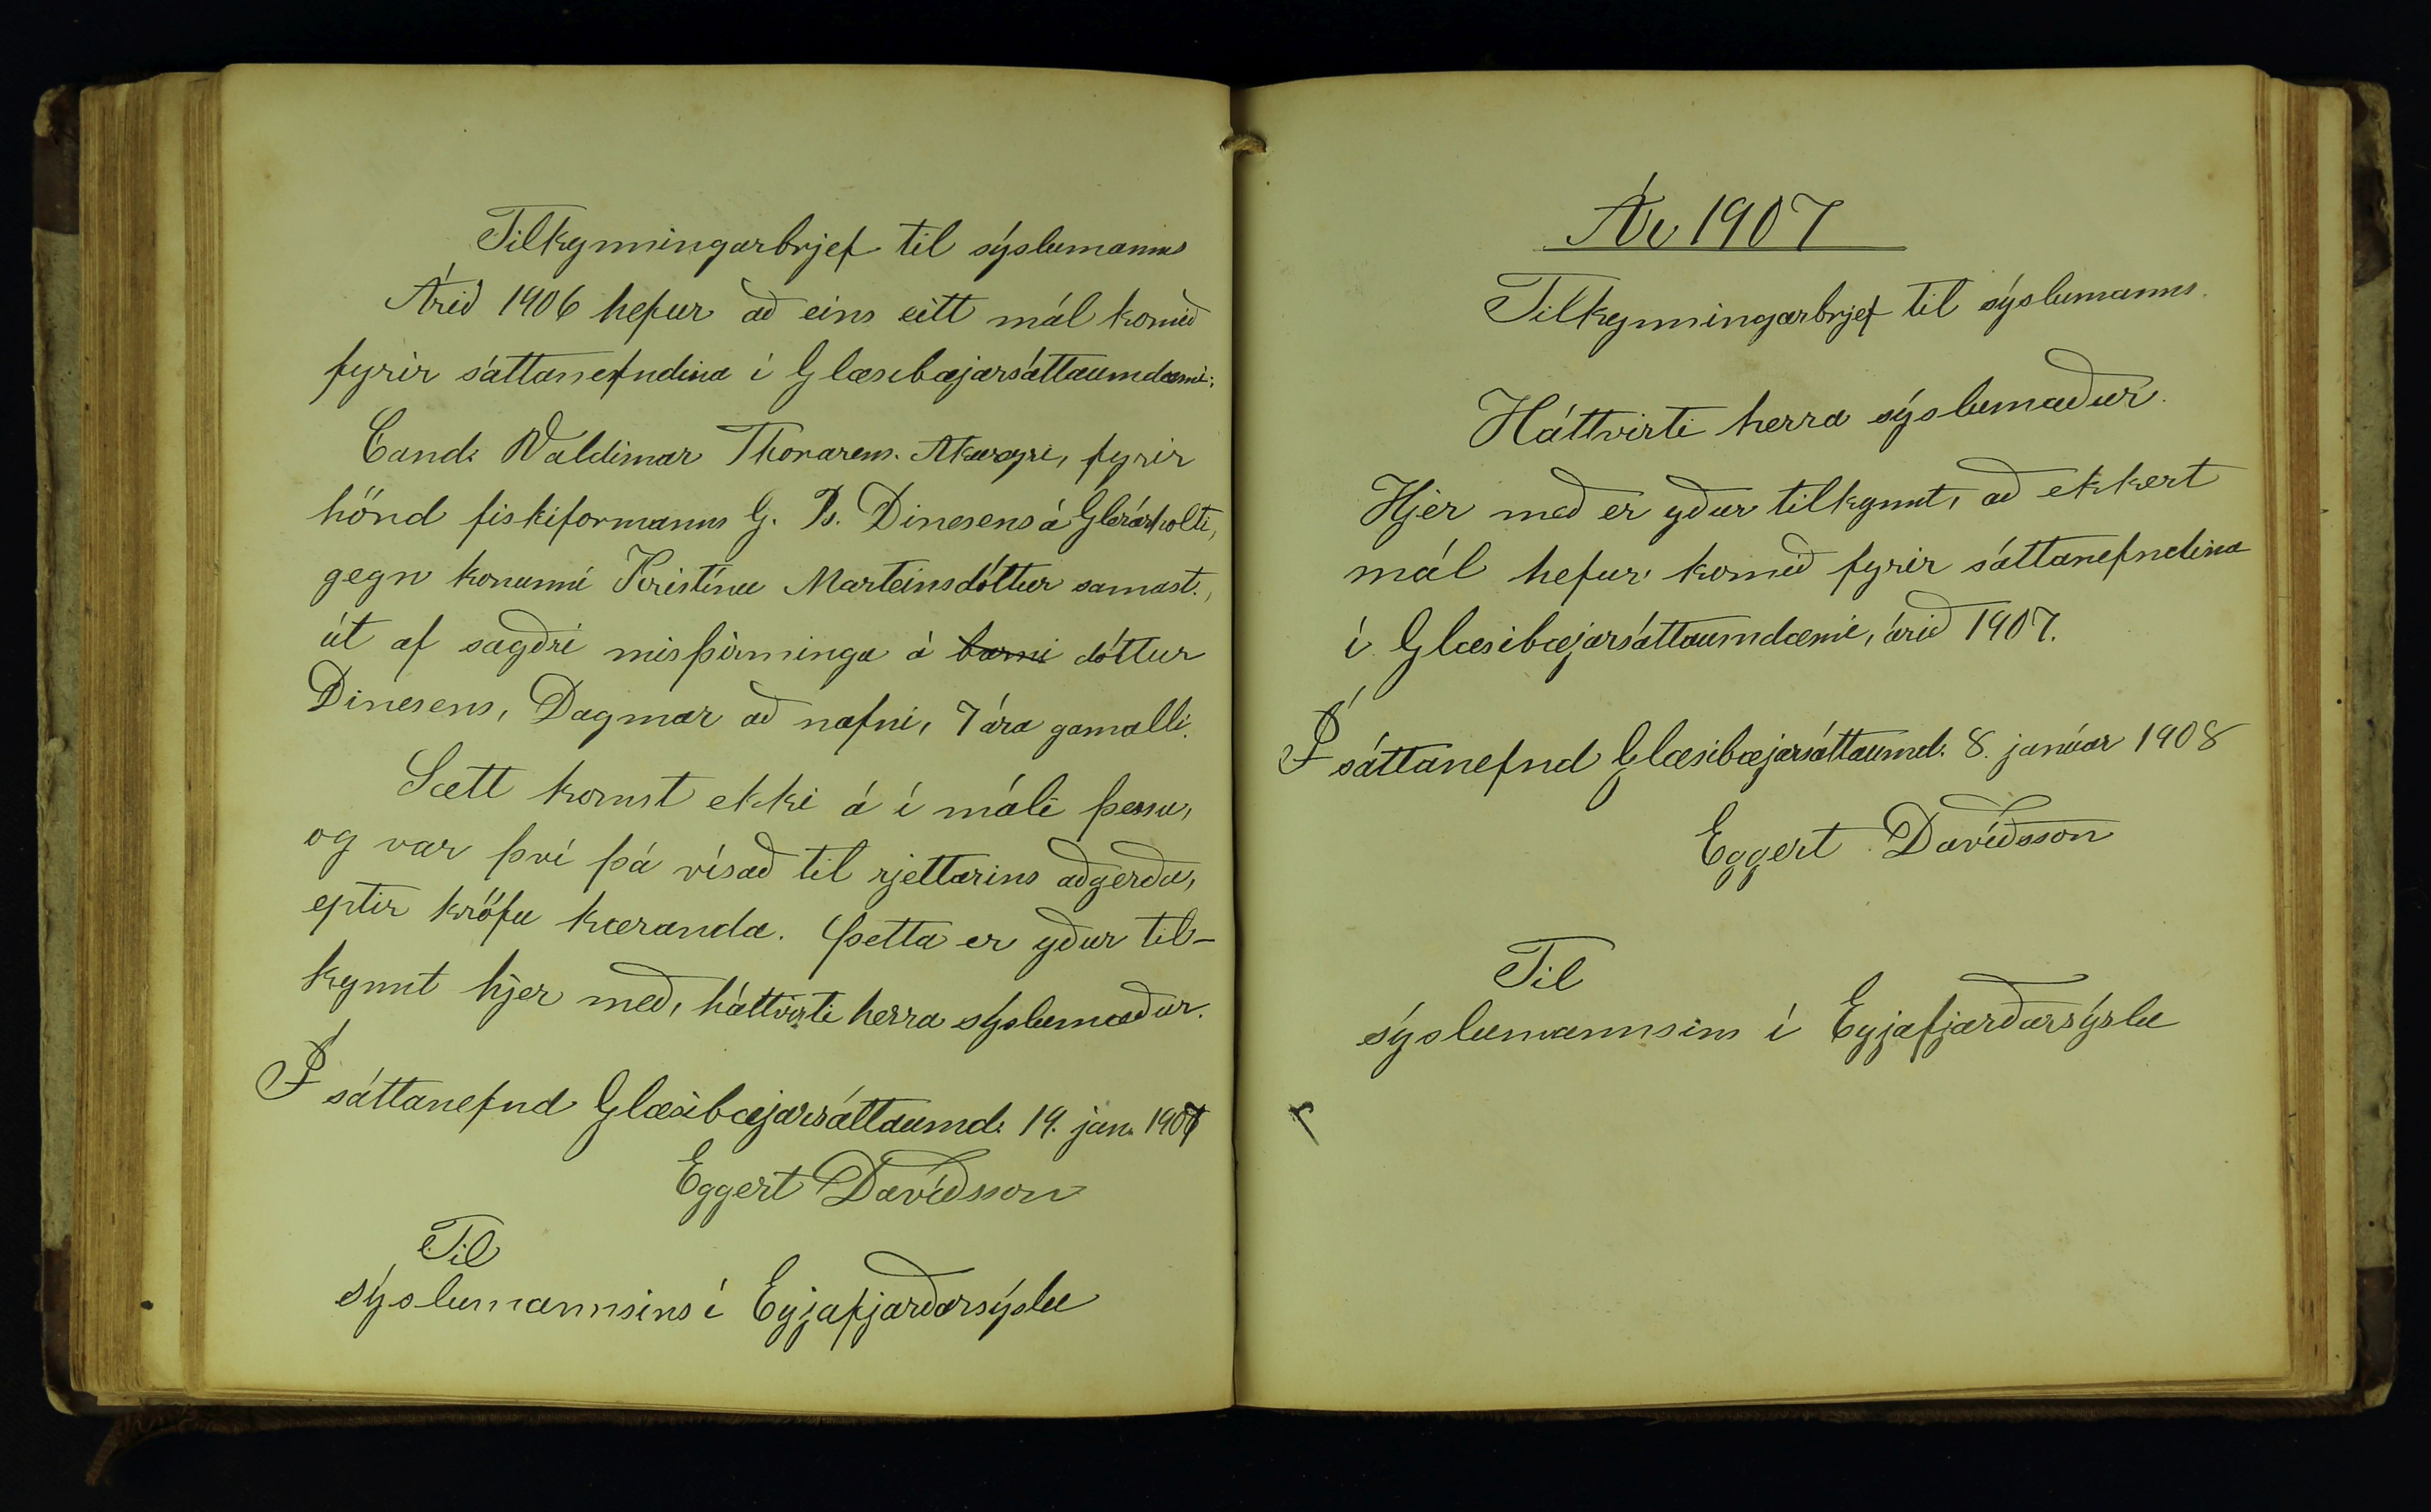 Tilkynningarbrjef til sýslumanns
Árið 1906 hefur að eins eitt mál komið
fyrir sáttanefndina í Glæsibæjarsáttaumdæmi:
Cand: Valdimar Thorarens. Akureyri, fyrir
hönd fiskiformanns G. Ps. Dinesens á Glerárholti,
gegn konunni Kristínu Marteinsdóttur samast.,
út af sagðri misþirminga á barni dóttur
Dinesens, Dagmar að nafni, 7 ára gamalli.
Sætt komst ekki á í máli þessu,
og var því þá vísað til rjettarins aðgerða,
eptir kröfu kæranda. Þetta er yður til-
kynnt hjer með, háttvirti herra sýslumaður.
Í sáttanefnd Glæsibæjarsáttaumd: 19. jan. 1907
Eggert Davíðsson
Til
sýslumannsins í Eyjafjarðarsýslu
Ár 1907
Tilkynningarbrjef til sýslumanns.
Háttvirti herra sýslumaður.
Hjer með er yður tilkynnt, að ekkert
mál hefur komið fyrir sáttanefndina
í Glæsibæjarsáttaumdæmi, árið 1907.
Í sáttanefnd Glæsibæjarsáttaumd: 8. janúar 1908
Eggert Davíðsson
Til
sýslumannsins í Eyjafjarðarsýslu